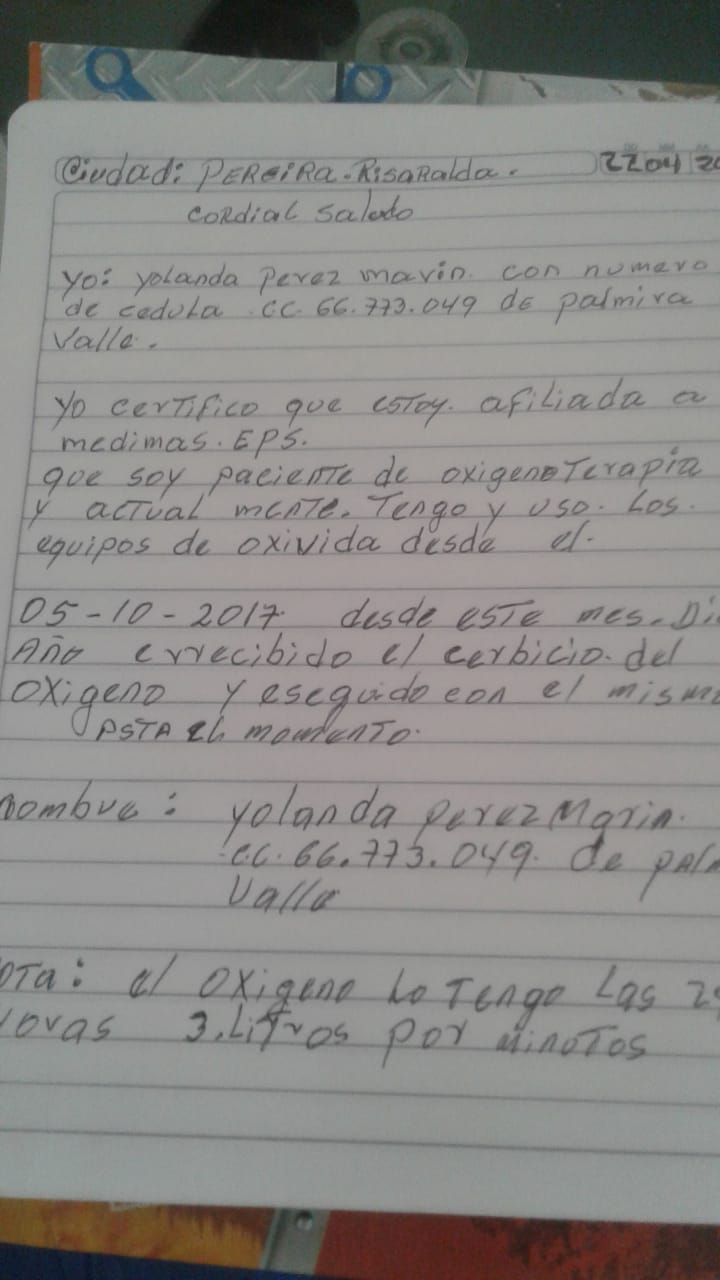 Ciudad: PEREIRA. RisaRalda.
22 04 20
CORdiaL Saludo
yo: yolanda perez marin. con numero
de cedula. cc. 66.773.049 de palmira
Valle.
yo certifico que estoy. afiliada a
medimas. EPS.
que soy paciente de oxigenoterapia
y actual mente. Tengo y uso. Los.
equipos de oxivida desde el.
05-10-2017 desde este mes. Di
Año errecibido el cerbicio. del
oxigeno y eseguido con el mism
ASTA EL momento.
nombre: yolanda perez Marin.
cc. 66.773.049. de pal
Valle
OTa: el oxigeno Lo Tengo Las 2
oras 3. Litros por minutos